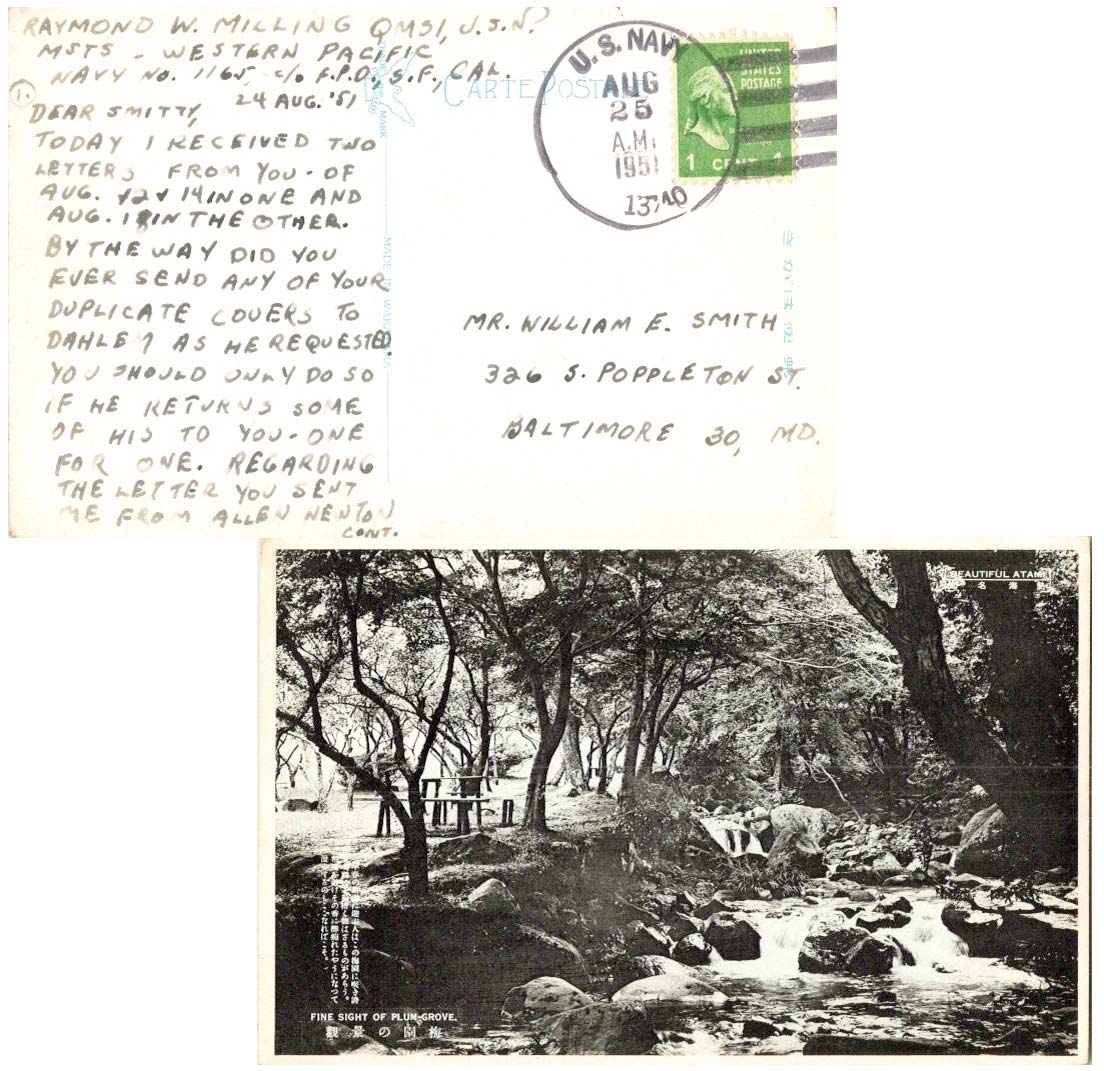 RAYMOND W. MILLING QMS1, U.S.N.
MSTS - WESTERN PACIFIC
NAVY NO. 1165, c/o F.P.O., S.F., CAL.
24 AUG. '51
1.
DEAR SMITTY,
TODAY I RECEIVED TWO
LETTERS FROM YOU - OF
AUG. 12 & 14 IN ONE AND
AUG. 18 IN THE OTHER.
BY THE WAY DID YOU
EVER SEND ANY OF YOUR
DUPLICATE COVERS TO
DAHLEM AS HE REQUESTED.
YOU SHOULD ONLY DO SO
IF HE RETURNS SOME
OF HIS TO YOU - ONE
FOR ONE. REGARDING
THE LETTER YOU SENT
ME FROM ALLEN NEWTON
CONT.
TRADE MARK
MADE IN WAKAYAMA
CARTE POSTALE
U.S. NAVY
AUG
25
A.M.
1951
13740
UNITED
STATES
POSTAGE
1 CENT 1
MR. WILLIAM E. SMITH
326 S. POPPLETON ST.
BALTIMORE 30, MD.
(BEAUTIFUL ATAMI)
名
FINE SIGHT OF PLUM-GROVE.
觀景の園梅